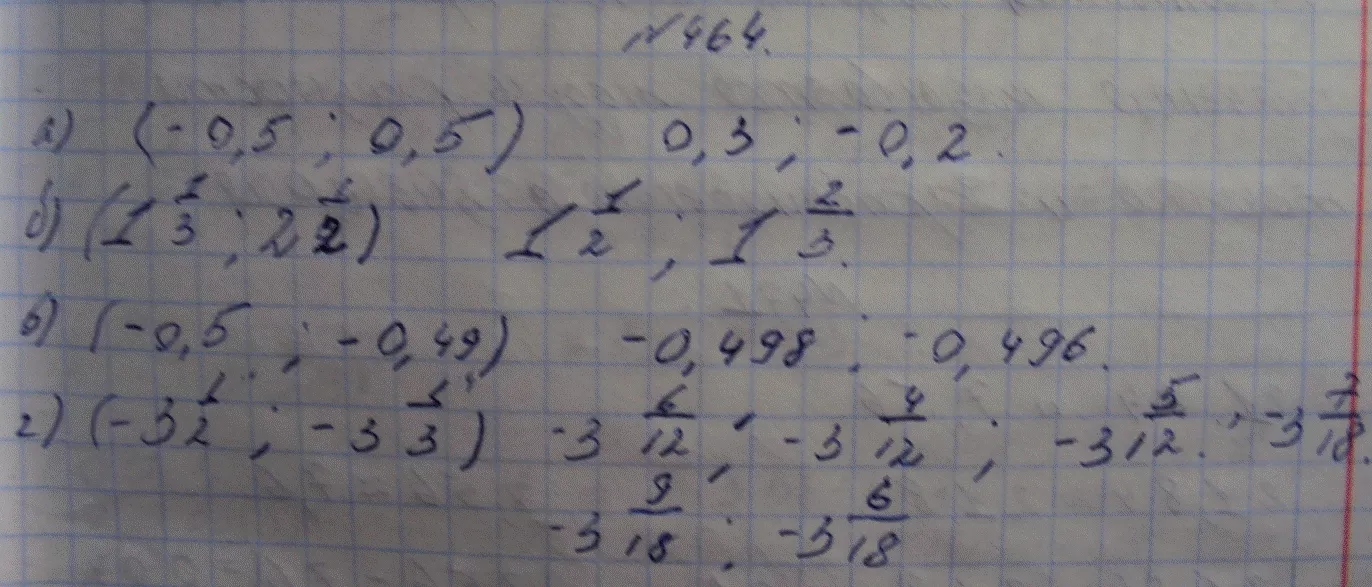 №464.
а) (-0,5; 0,5) 0,3; -0,2.
б) (1 1/3; 2 1/2) 1 1/2; 1 2/3.
в) (-0,5; -0,49) -0,498; -0,496.
г) (-3 1/2; -3 1/3) -3 6/12; -3 4/12; -3 5/12. -3 7/18.
-3 9/18; -3 6/18